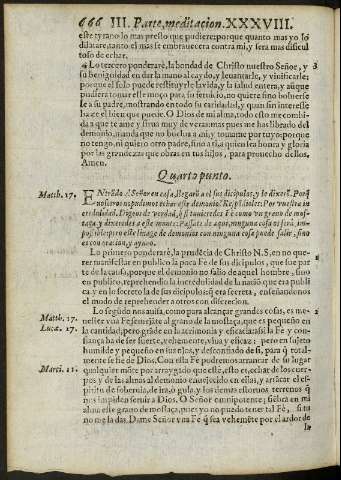 666 III. Parte, meditacion. XXXVIII.
este tyrano lo mas presto que pudiere: porque quanto mas yo lo
dilatare, tanto el mas se embrauecera contra mi, y sera mas dificul
toso de echar.
4 Lo tercero ponderarè, la bondad de Christo nuestro Señor, y 3
su benignidad en dar la mano al caydo, y leuantarle, y viuificarle;
porque èl solo puede restituyrle la vida, y la salud entera, y aunque
pudiera tomarle moço para su seruicio, no quiere sino boluerse
le a su padre, mostrando en todo su caridad, y quan sin interesse
haze el bien que puede. O Dios de mi alma, todo esto me combi-
da a que te ame y sirua muy de veras: mas pues me has librado del
demonio, manda que no buelua a mi, y tomame por tuyo: porque
no tengo, ni quiero otro padre, sino a ti, a quien sea honra y gloria
por las grandezas que obras en tus hijos, para prouecho dellos.
Amen.
Quarto punto.
Matth. 17. ENtrādo el Señor en casa, llegarō a el sus dicipulos, y le dixerō. Porq̄
nosotros no pudimos echar este demonio? Respōdioles: Por vuestra in
credulidad. Digoos de verdad, q̄ si tuuieredes Fè como vn grano de mos-
taça y dixeredes a este monte: Passate de aqui, ninguna cosa os serà, im-
possible: pero este linage de demonios con ninguna cosa puede salir, sino
es con oracion, y ayuno.
Lo primero ponderarè, la prudēcia de Christo N. S. en no que-
rer manifestar en publico la poca Fè de sus dicipulos, que fue par
te de la causa, porque el demonio no salio de aquel hombre, sino
en publico, reprehendio la incredulidad de la naciō que era publi
ca, y en lo secreto la de sus dicipulos, q̄ era secreta, enseñandonos
el modo de reprehender a otros con discrecion.
Lo segūdo nos auisa, como para alcançar grandes cosas, es me- 2
Matth. 17. nester vna Fè semejāte al grano de la mostaça, que es pequeño en
Lucæ. 17. la cantidad, pero grāde en la acrimonia y eficacia: assi la Fè y con-
fiança ha de ser fuerte, vehemente, viua y eficaz; pero en sujeto
humilde y pequeño en sus ojos, y desconfiado de si, para q̄ total-
mente se fie de Dios. Con esta Fè podremos arrancar de su lugar
Marci. 11. qualquier mōte por arraygado que estè, esto es, echar de los cuer-
pos y de las almas al demonio endurecido en ellas, y arrācar el es-
piritu de soberuia, de ira, ò gula, y los demas afectos terrenos q̄
nos impiden seruir a Dios. O Señor omnipotente; siēbra en mi
alma este grano de mostaça, pues yo no puedo tener tal Fè, si tu
no me la das. Dame Señor vna Fè q̄ sea vehemēte por el ardor de
la